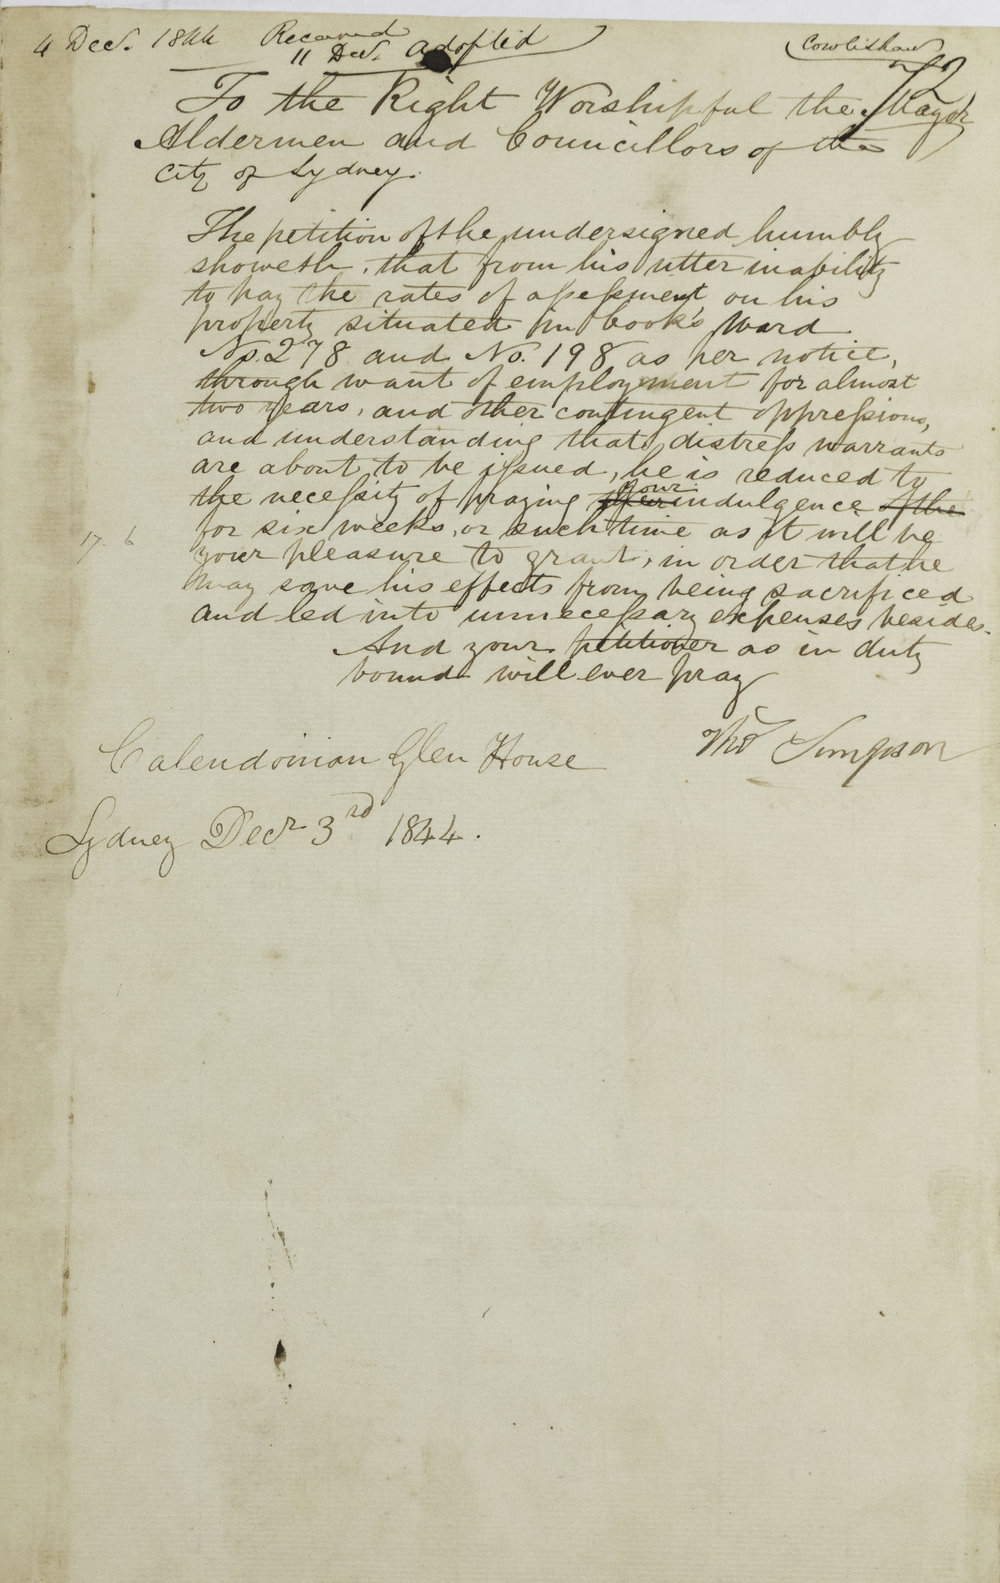 4 Decr. 1844 Received
11 Decr. adopted
Cowlishaw
72
To the Right Worshipful the Mayor
Aldermen and Councillors of the
City of Sydney.
The petition of the undersigned humbly
showeth, that from his utter inability
to pay the rates of assessment, on his
property situated in Cook's Ward
No. 278 and No. 198 as per notice,
through want of employment for almost
two years, and other contingent oppressions,
and understanding that distress warrants
are about to be issued, he is reduced to
the necessity of praying your indulgence of the
for six weeks, or such time as it will be
17. 6
your pleasure to grant, in order that he
may save his effects from being sacrificed
and led into unnecessary expenses besides.
And your petitioner as in duty
bound will ever pray
Thos Simpson
Calendoinian Glen House
Sydney Decr 3rd 1844.